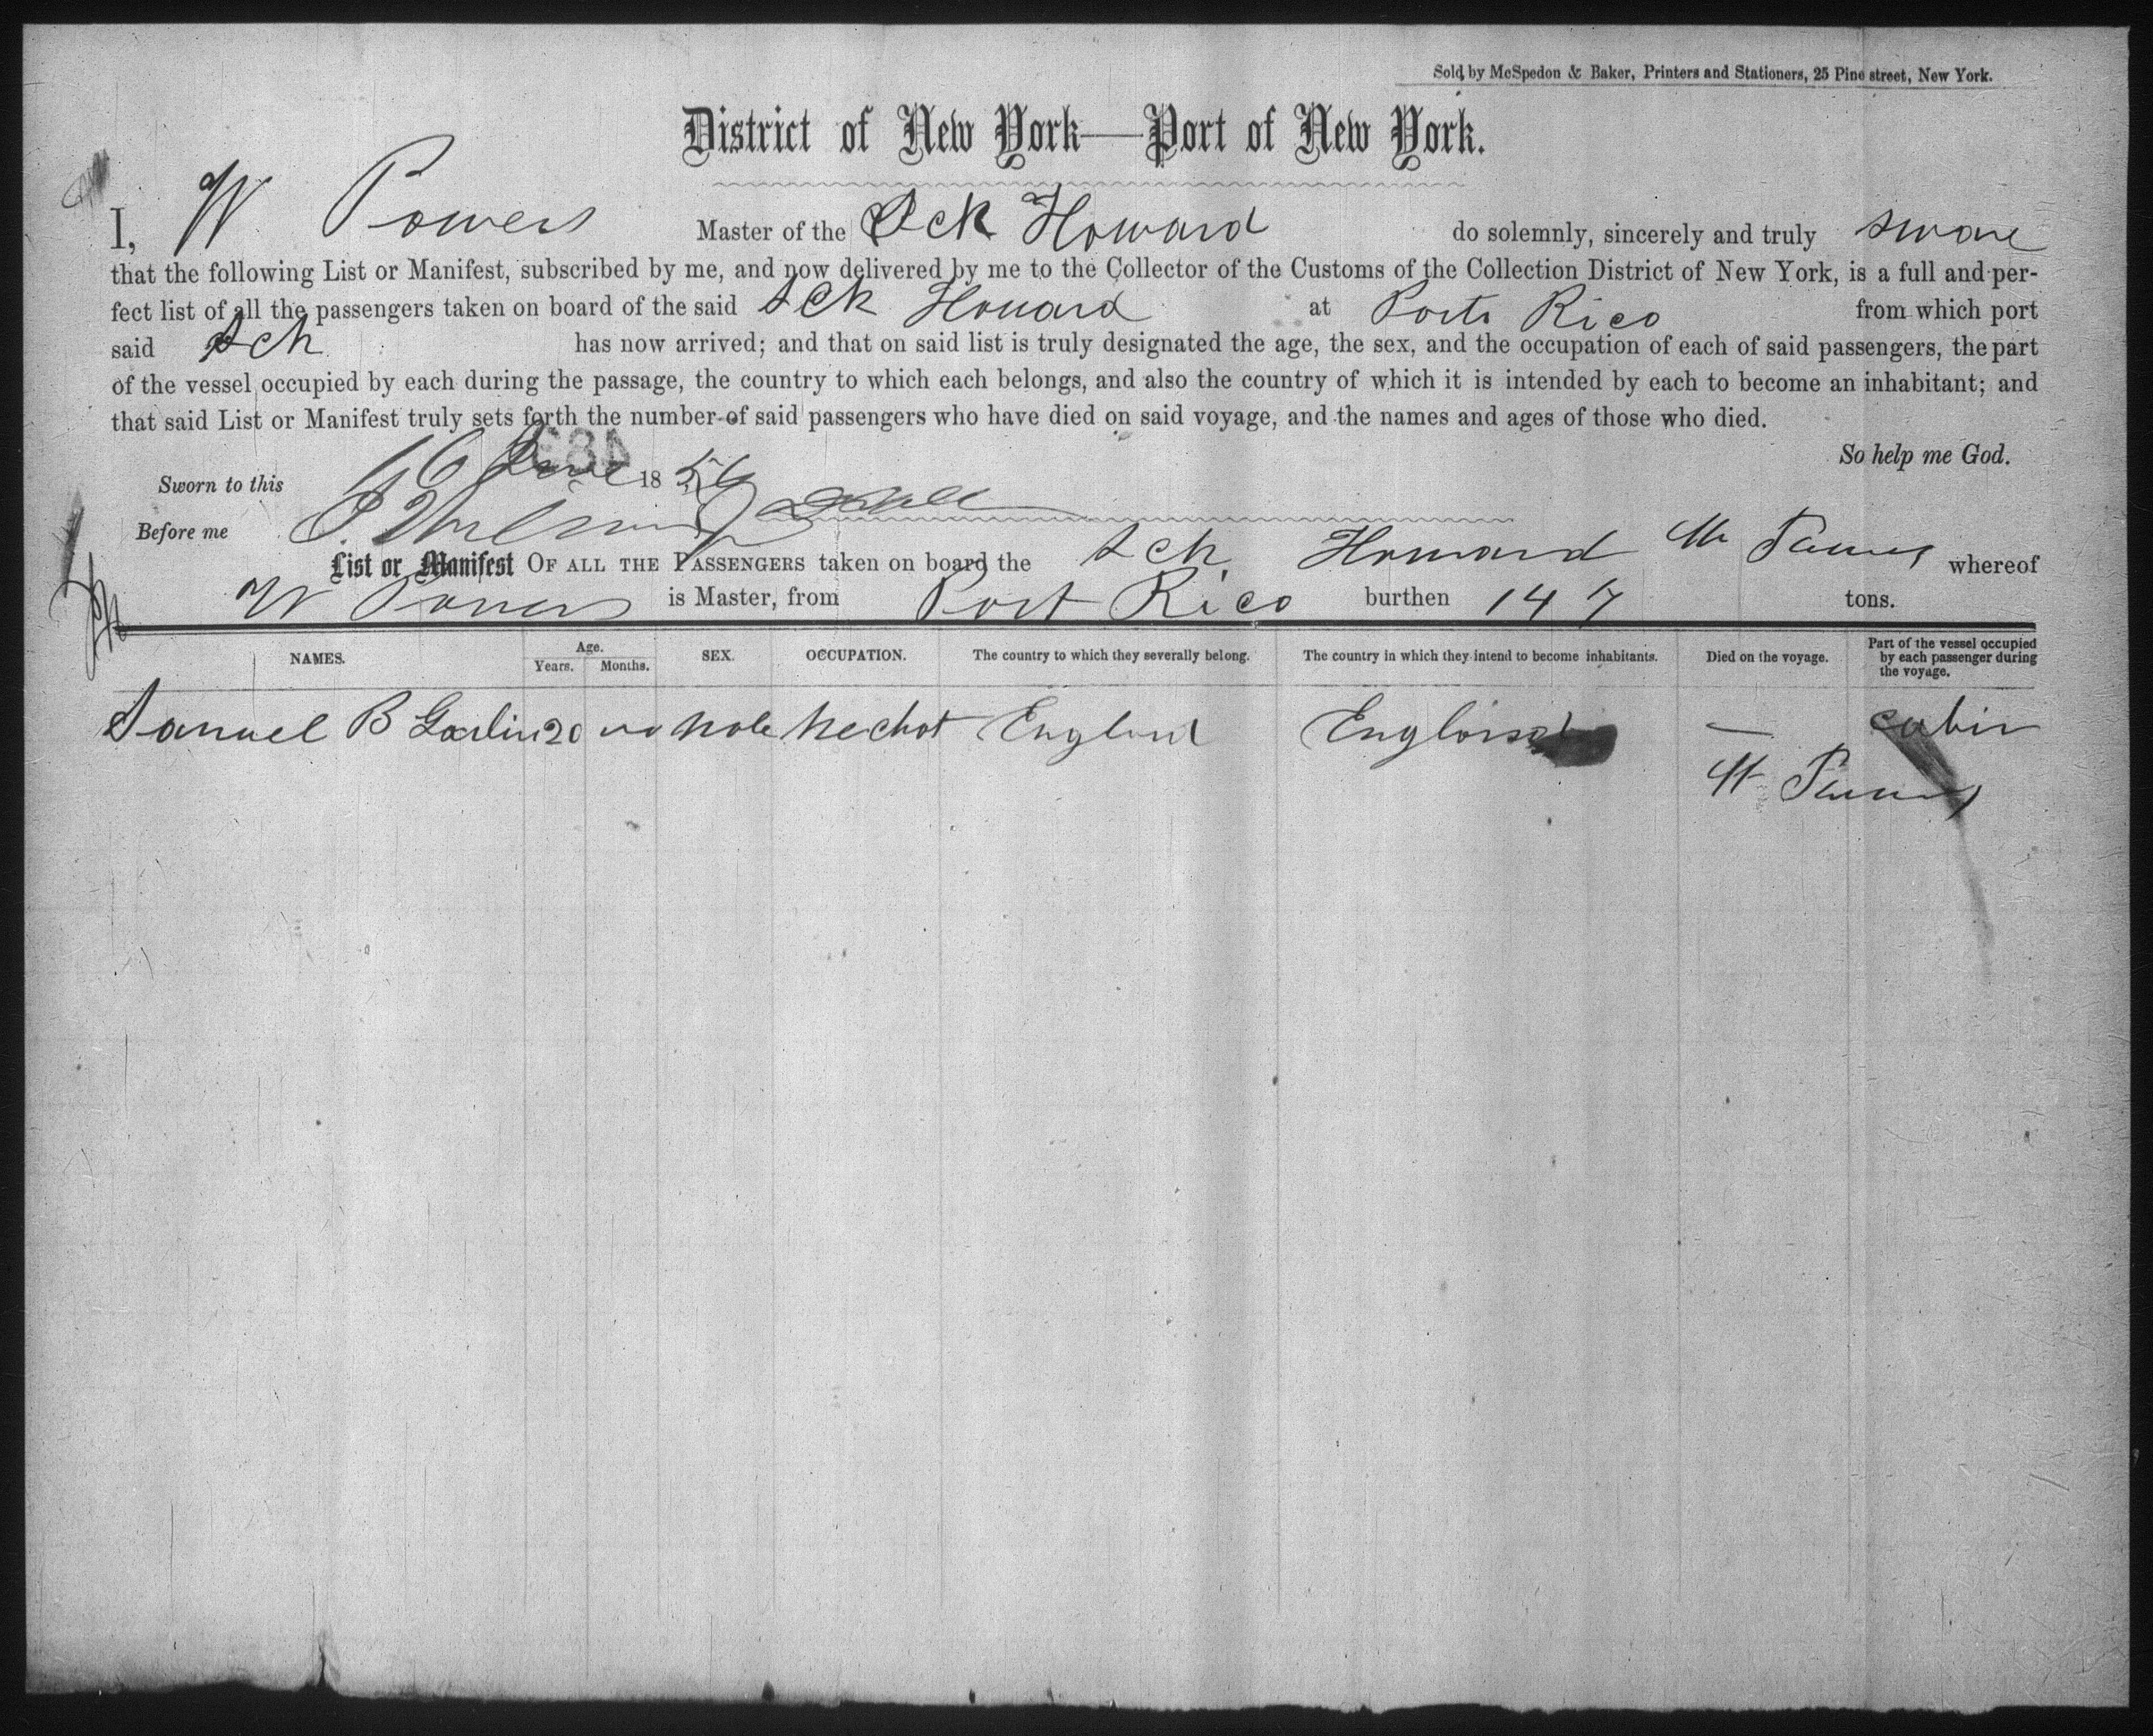 Sold by McSpedon & Baker, Printers and Stationers, 25 Pine street, New York.
District of New York—Port of New York.
I, W Powers Master of the Sch Howard do solemnly, sincerely and truly sware
that the following List or Manifest, subscribed by me, and now delivered by me to the Collector of the Customs of the Collection District of New York, is a full and per-
fect list of all the passengers taken on board of the said Sch Howard at Porto Rico from which port
said Sch has now arrived; and that on said list is truly designated the age, the sex, and the occupation of each of said passengers, the part
of the vessel occupied by each during the passage, the country to which each belongs, and also the country of which it is intended by each to become an inhabitant; and
that said List or Manifest truly sets forth the number of said passengers who have died on said voyage, and the names and ages of those who died.
So help me God.
Sworn to this 16 June 1856
Before me
List or Manifest OF ALL THE PASSENGERS taken on board the Sch Howard W Powers whereof
W Powers is Master, from Port Rico burthen 147 tons.
NAMES. Age. Years. Months. SEX. OCCUPATION. The country to which they severally belong. The country in which they intend to become inhabitants. Died on the voyage. Part of the vessel occupied by each passenger during the voyage.
Samuel B 20 no England — cabin
W Powers